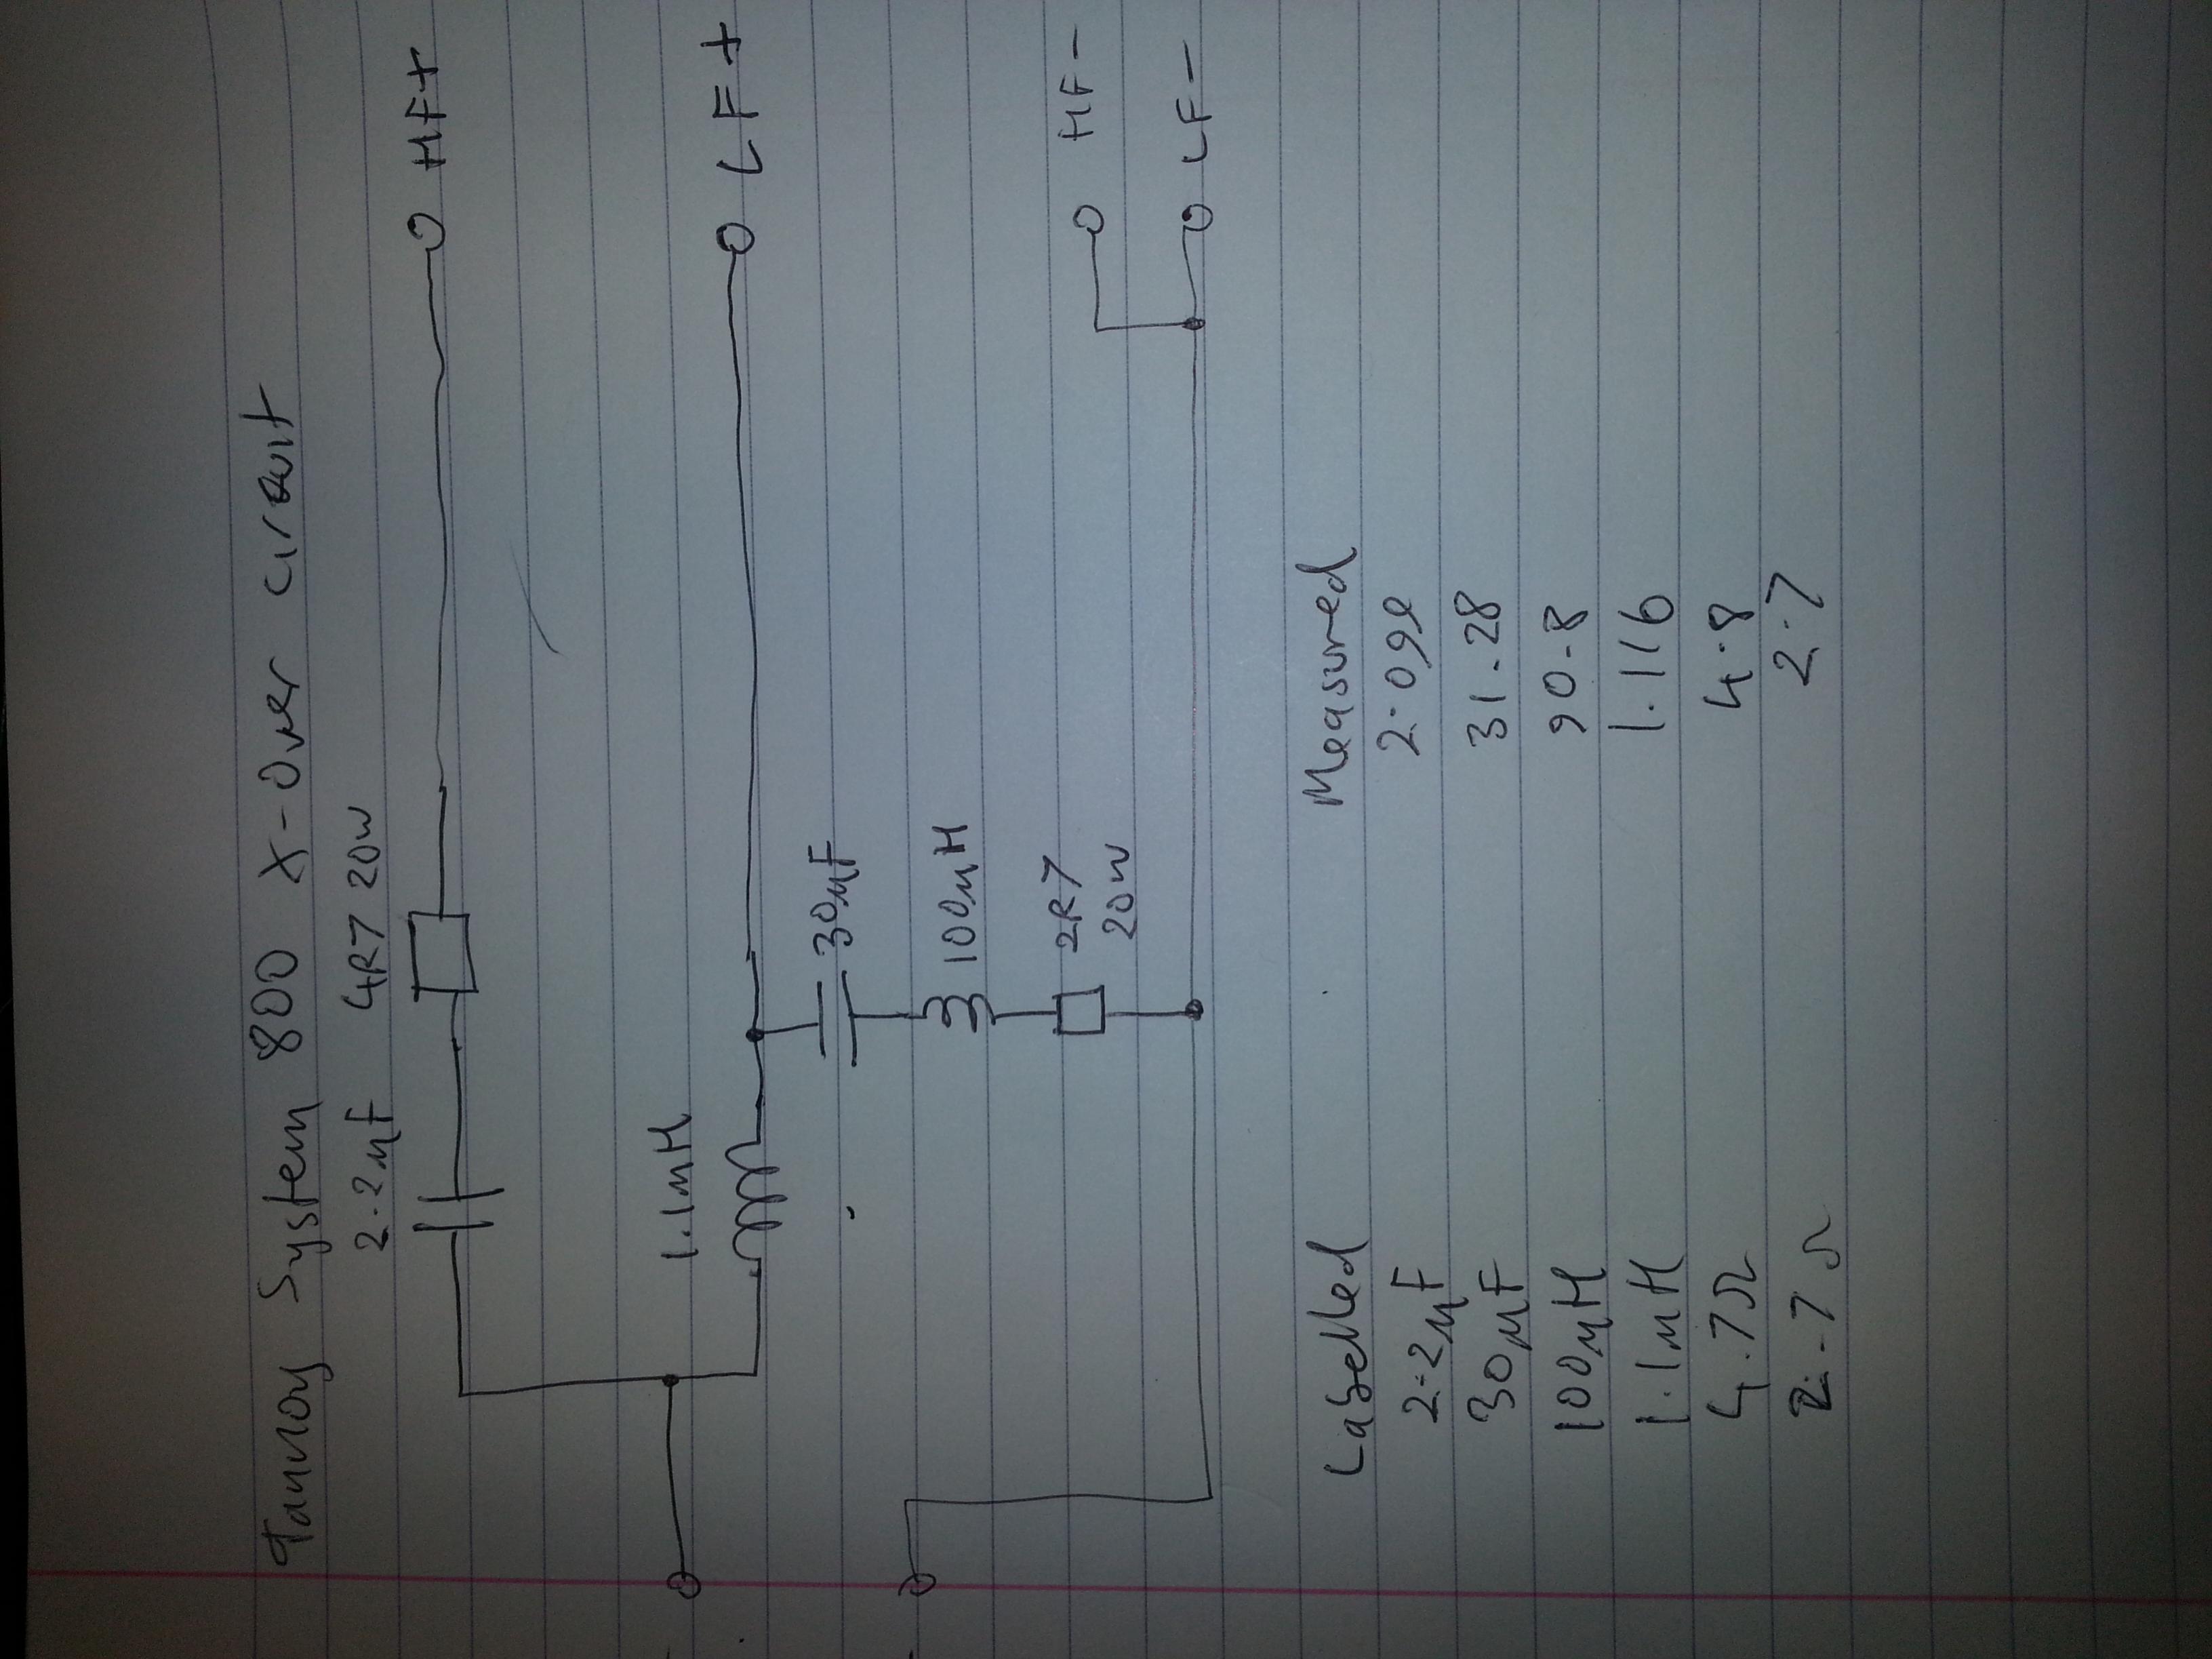 Tannoy System 800 X-Over circuit
2.2µF 4R7 20W
HF+
1.1mH
LF+
30µF
100µH
2R7
20W
HF-
LF-
Labelled Measured
2.2µF 2.098
30µF 31.28
100µH 90.8
1.1mH 1.116
4.7Ω 4.8
2.7Ω 2.7